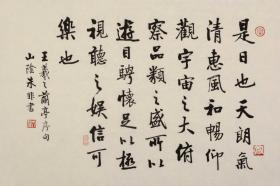 是日也天朗氣
清惠風和暢仰
觀宇宙之大俯
察品類之盛所以
遊目騁懷足以極
視聽之娛信可
樂也
王羲之蘭亭序句
山陰朱非書